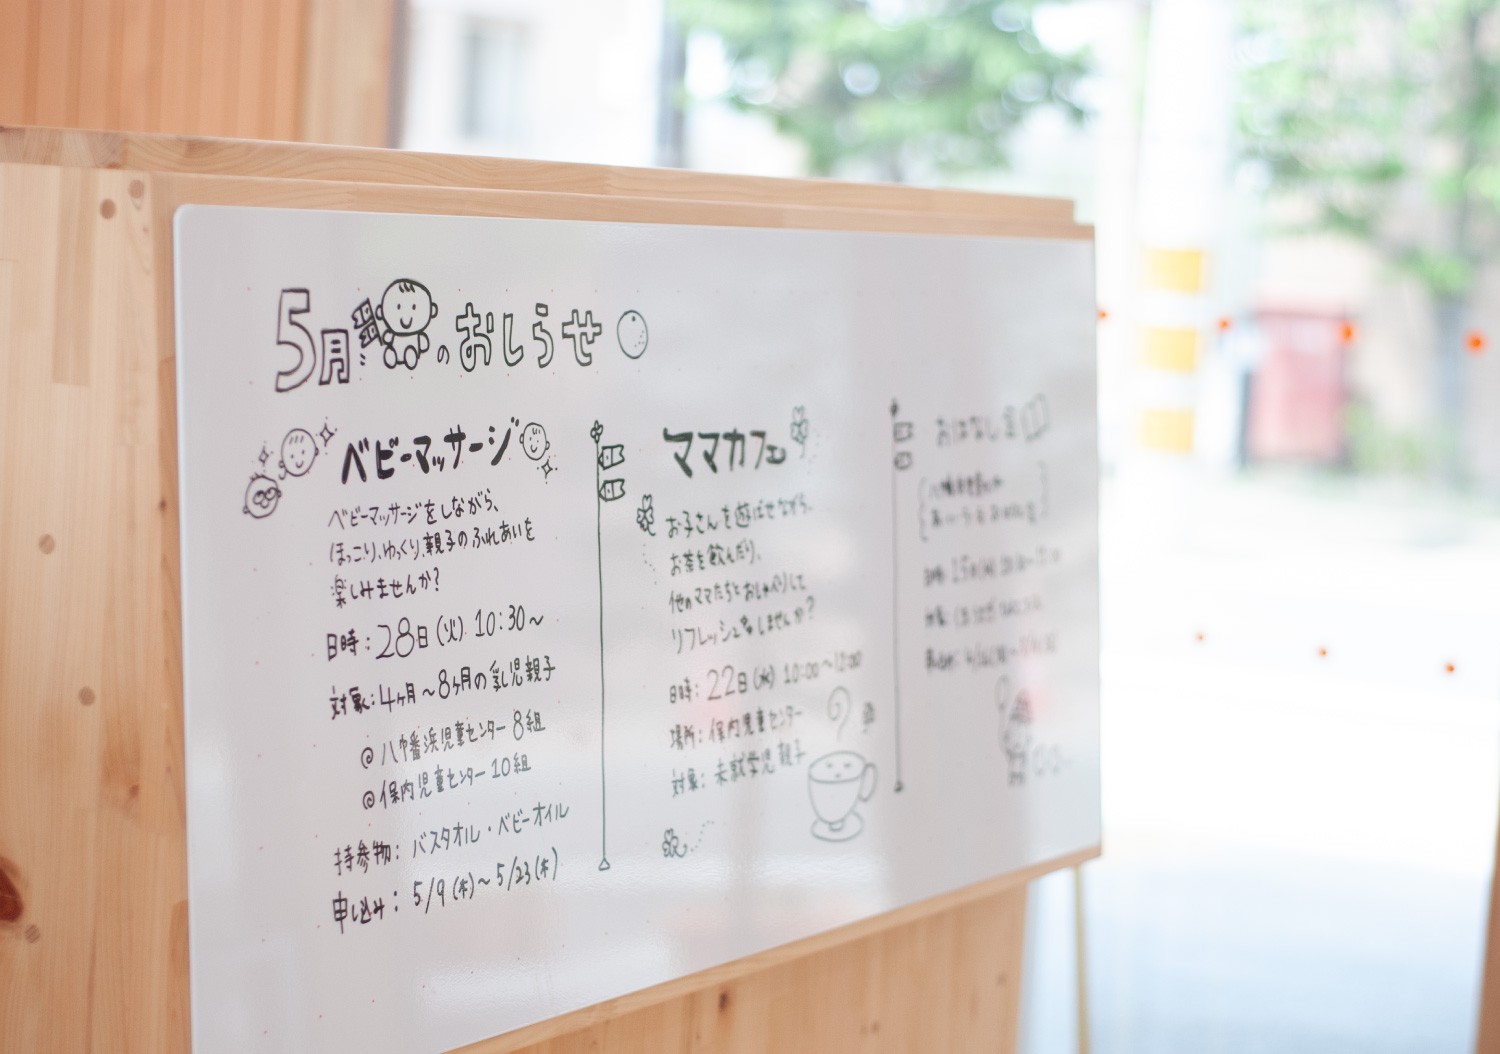 5月のおしらせ
ベビーマッサージ
ベビーマッサージをしながら、
ほっこり、ゆっくり、親子のふれあいを
楽しみませんか？
日時：28日(火) 10:30～
対象：4ヶ月～8ヶ月の乳児親子
@八幡浜児童センター 8組
@保内児童センター 10組
持参物：バスタオル・ベビーオイル
申し込み：5/9(木)～5/23(木)
ママカフェ
お子さんを遊ばせながら、
お茶を飲んだり、
他のママたちとおしゃべりして
リフレッシュしませんか？
日時：22日(水) 10:00～12:00
場所：保内児童センター
対象：未就学児親子
おはなし会